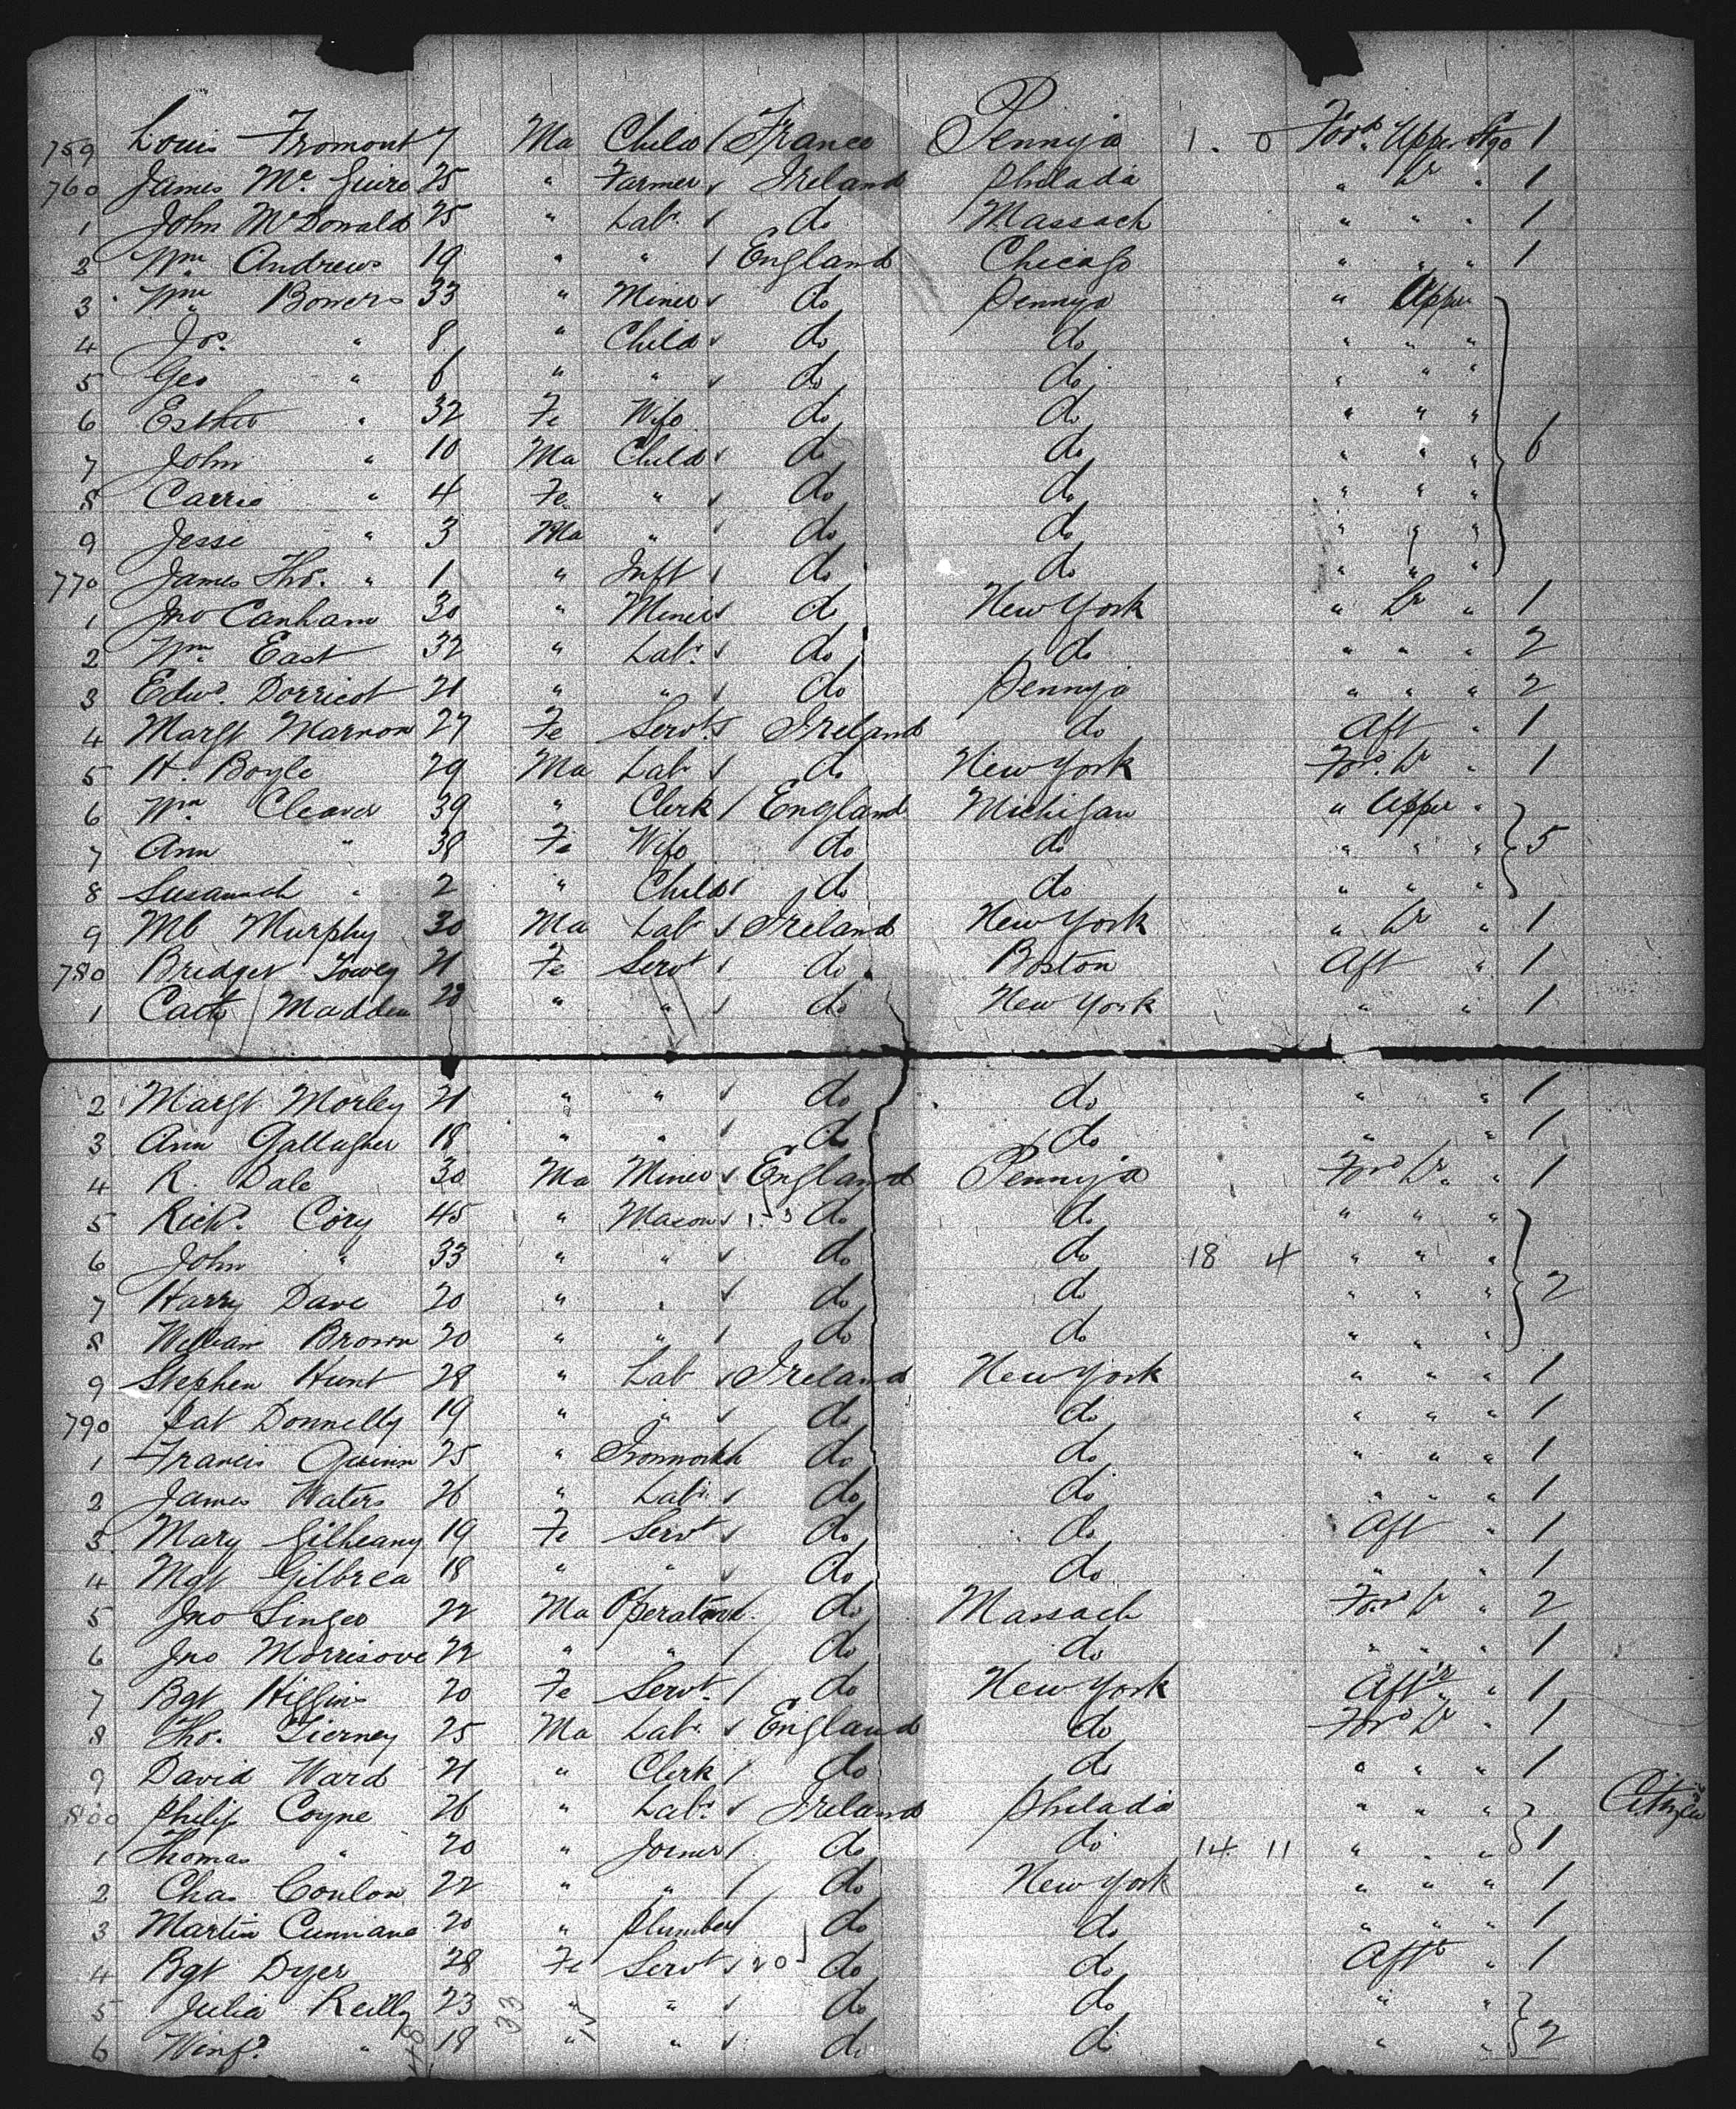 759 Louis Fromont 7 Ma Child / France Pennya 1. 0 Ford. Upper Stge 1
760 James Mc Guire 25 " Farmer ✓ Ireland Philada " Lr " 1
1 John McDonald 25 " Labr ✓ do Massach " " " 1
2 Wm Andrews 19 " " / England Chicago " " " 1
3 Wm Bowers 33 " Miner ✓ do Pennya " Upper
4 Jos. " 8 " Child ✓ do do " " "
5 Geo " 6 " " ✓ do do " " "
6 Esther " 32 Fe Wife do do " " "
7 John " 10 Ma Child ✓ do do " " " 6
8 Carrie " 4 Fe " ✓ do do " " "
9 Jesse " 3 Ma " ✓ do do " " "
770 James Thos. " 1 " Inft ✓ do do " " "
1 Jno Canham 30 " Miner ✓ do New York " Lr " 1
2 Wm East 32 " Labr ✓ do do " " " 2
3 Edwd. Dorricot 21 " " ✓ do Pennya " " " 2
4 Margt Marron 27 Fe Servt ✓ Ireland do Aft " 1
5 H. Boyle 29 Ma Labr ✓ do New York Ford. Lr " 1
6 Wm Cleaver 39 " Clerk / England Michigan " Upper "
7 Ann " 38 Fe Wife do do " " " 5
8 Susannah " 2 " Child / do do " " "
9 Ml Murphy 30 Ma Labr ✓ Ireland New York " Lr " 1
780 Bridget Towey 21 Fe Servt ✓ do Boston Aft " 1
1 Cath Madden 20 " " ✓ do New York " " 1
2 Margt Morley 21 " " ✓ do do " " 1
3 Ann Gallagher 18 " " ✓ do do " " 1
4 R. Dale 30 Ma Miner ✓ England Pennya Ford Lr " 1
5 Richd. Cory 45 " Mason ✓ do do " " "
6 John " 33 " " ✓ do do 18 4 " " "
7 Harry Dave 20 " " ✓ do do " " " 2
8 William Brown 20 " " / do do " " "
9 Stephen Hunt 28 " Labr ✓ Ireland New York " " " 1
790 Pat Donnelly 19 " " ✓ do do " " " 1
1 Francis Quinn 25 " do do " " " 1
2 James Waters 26 " Labr ✓ do do " " " 1
3 Mary Gilheany 19 Fe Servt ✓ do do Aft " 1
4 Mgt Gilbrea 18 " " ✓ do do " " 1
5 Jno Singer 22 Ma Operative do Massach Ford Lr " 2
6 Jno 22 " " / do do " " " 1
7 Bgt Higgins 20 Fe Servt. / do New York Aft " 1
8 Thos. Tierney 25 Ma Labr ✓ England do Ford Lr " 1
9 David Ward 21 " Clerk / do do " " " 1
800 Philip Coyne 26 " Labr ✓ Ireland Philada " " " Citizen
1 Thomas " 20 " Joiner / do do 14 11 " " " 1
2 Chas Conlon 22 " " / do New York " " " 1
3 Martin Cunnane 20 " Plumber / do do " " " 1
4 Bgt Dyer 28 Fe Servt ✓ 20 do do Aft " 1
5 Julia Reilly 23 " " ✓ do do " "
6 Winfd. " 18 " " ✓ do do " " 2
33 17